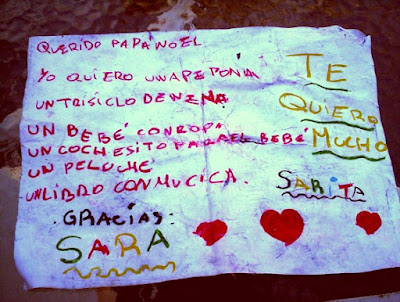 QUERIDO PAPA NOEL
YO QUIERO UNA PEPONIA
UN TRISICLO DE NENA
UN BEBÉ CON ROPA
UN COCHESITO PARA EL BEBÉ
UN PELUCHE
UN LIBRO CON MUCICA.
.GRACIAS:
SARA
TE
QUIERO
MUCHO
SARITA